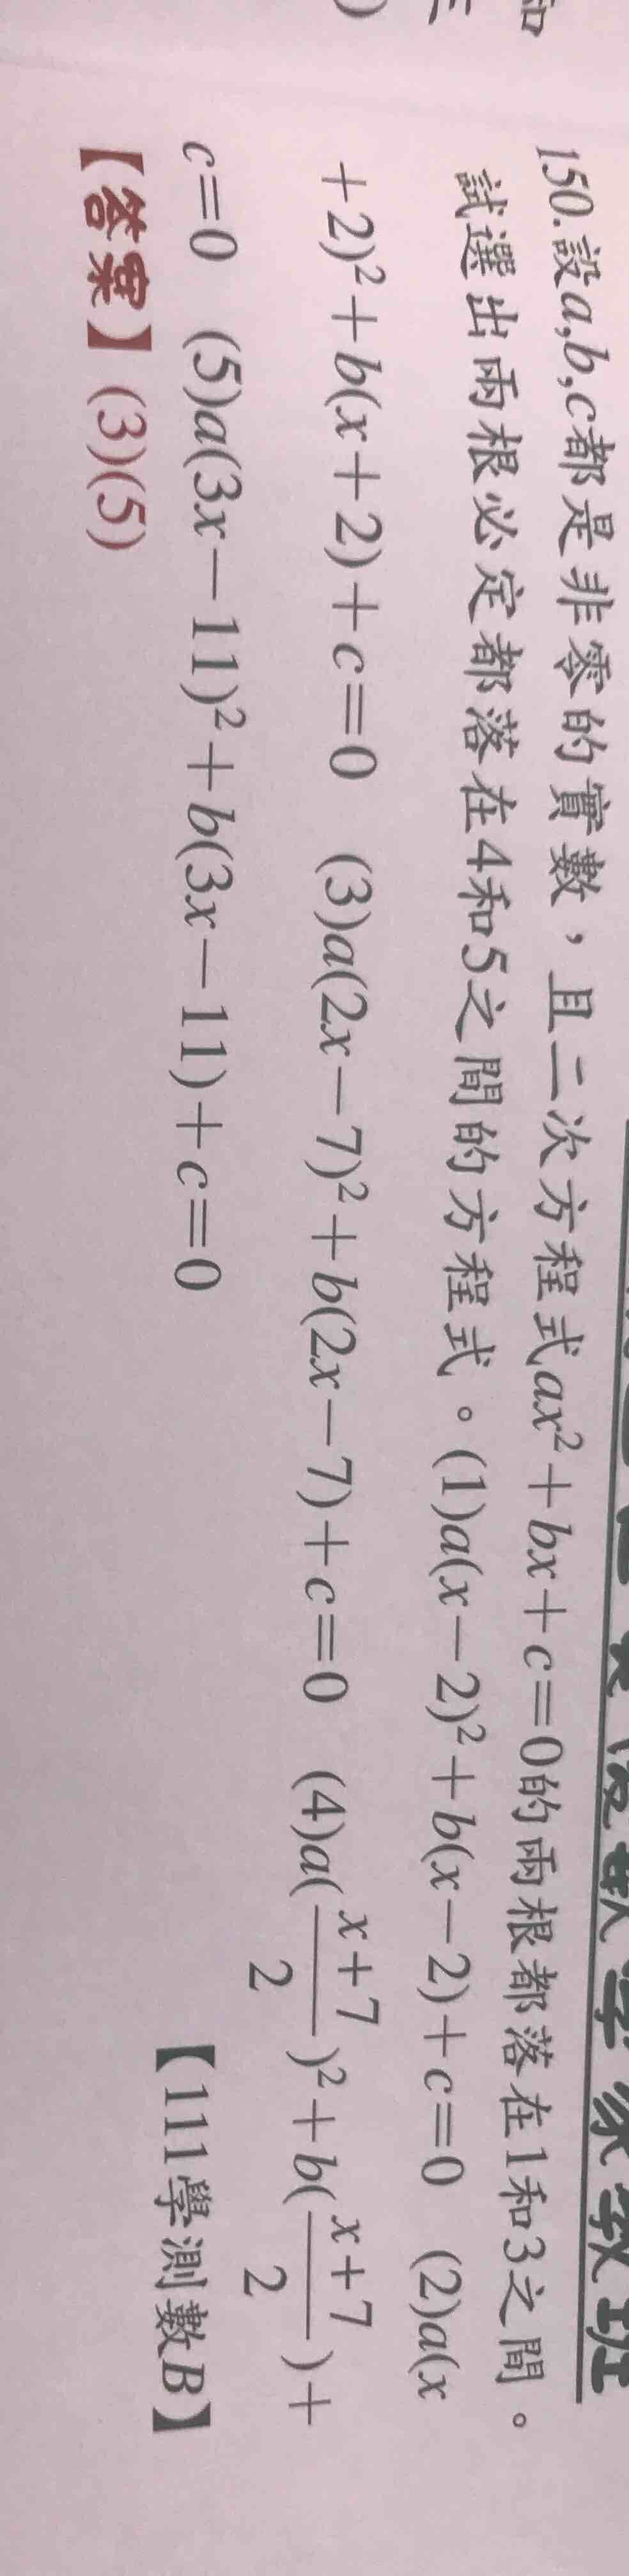 150.設a,b,c都是非零的實數，且二次方程式ax²+bx+c=0的兩根都落在1和3之間。
試選出兩根必定都落在4和5之間的方程式。(1)a(x-2)²+b(x-2)+c=0 (2)a(x
+2)²+b(x+2)+c=0 (3)a(2x-7)²+b(2x-7)+c=0 (4)a(\frac{x+7}{2})²+b(\frac{x+7}{2})+
c=0 (5)a(3x-11)²+b(3x-11)+c=0 【111學測數B】
【答案】(3)(5)